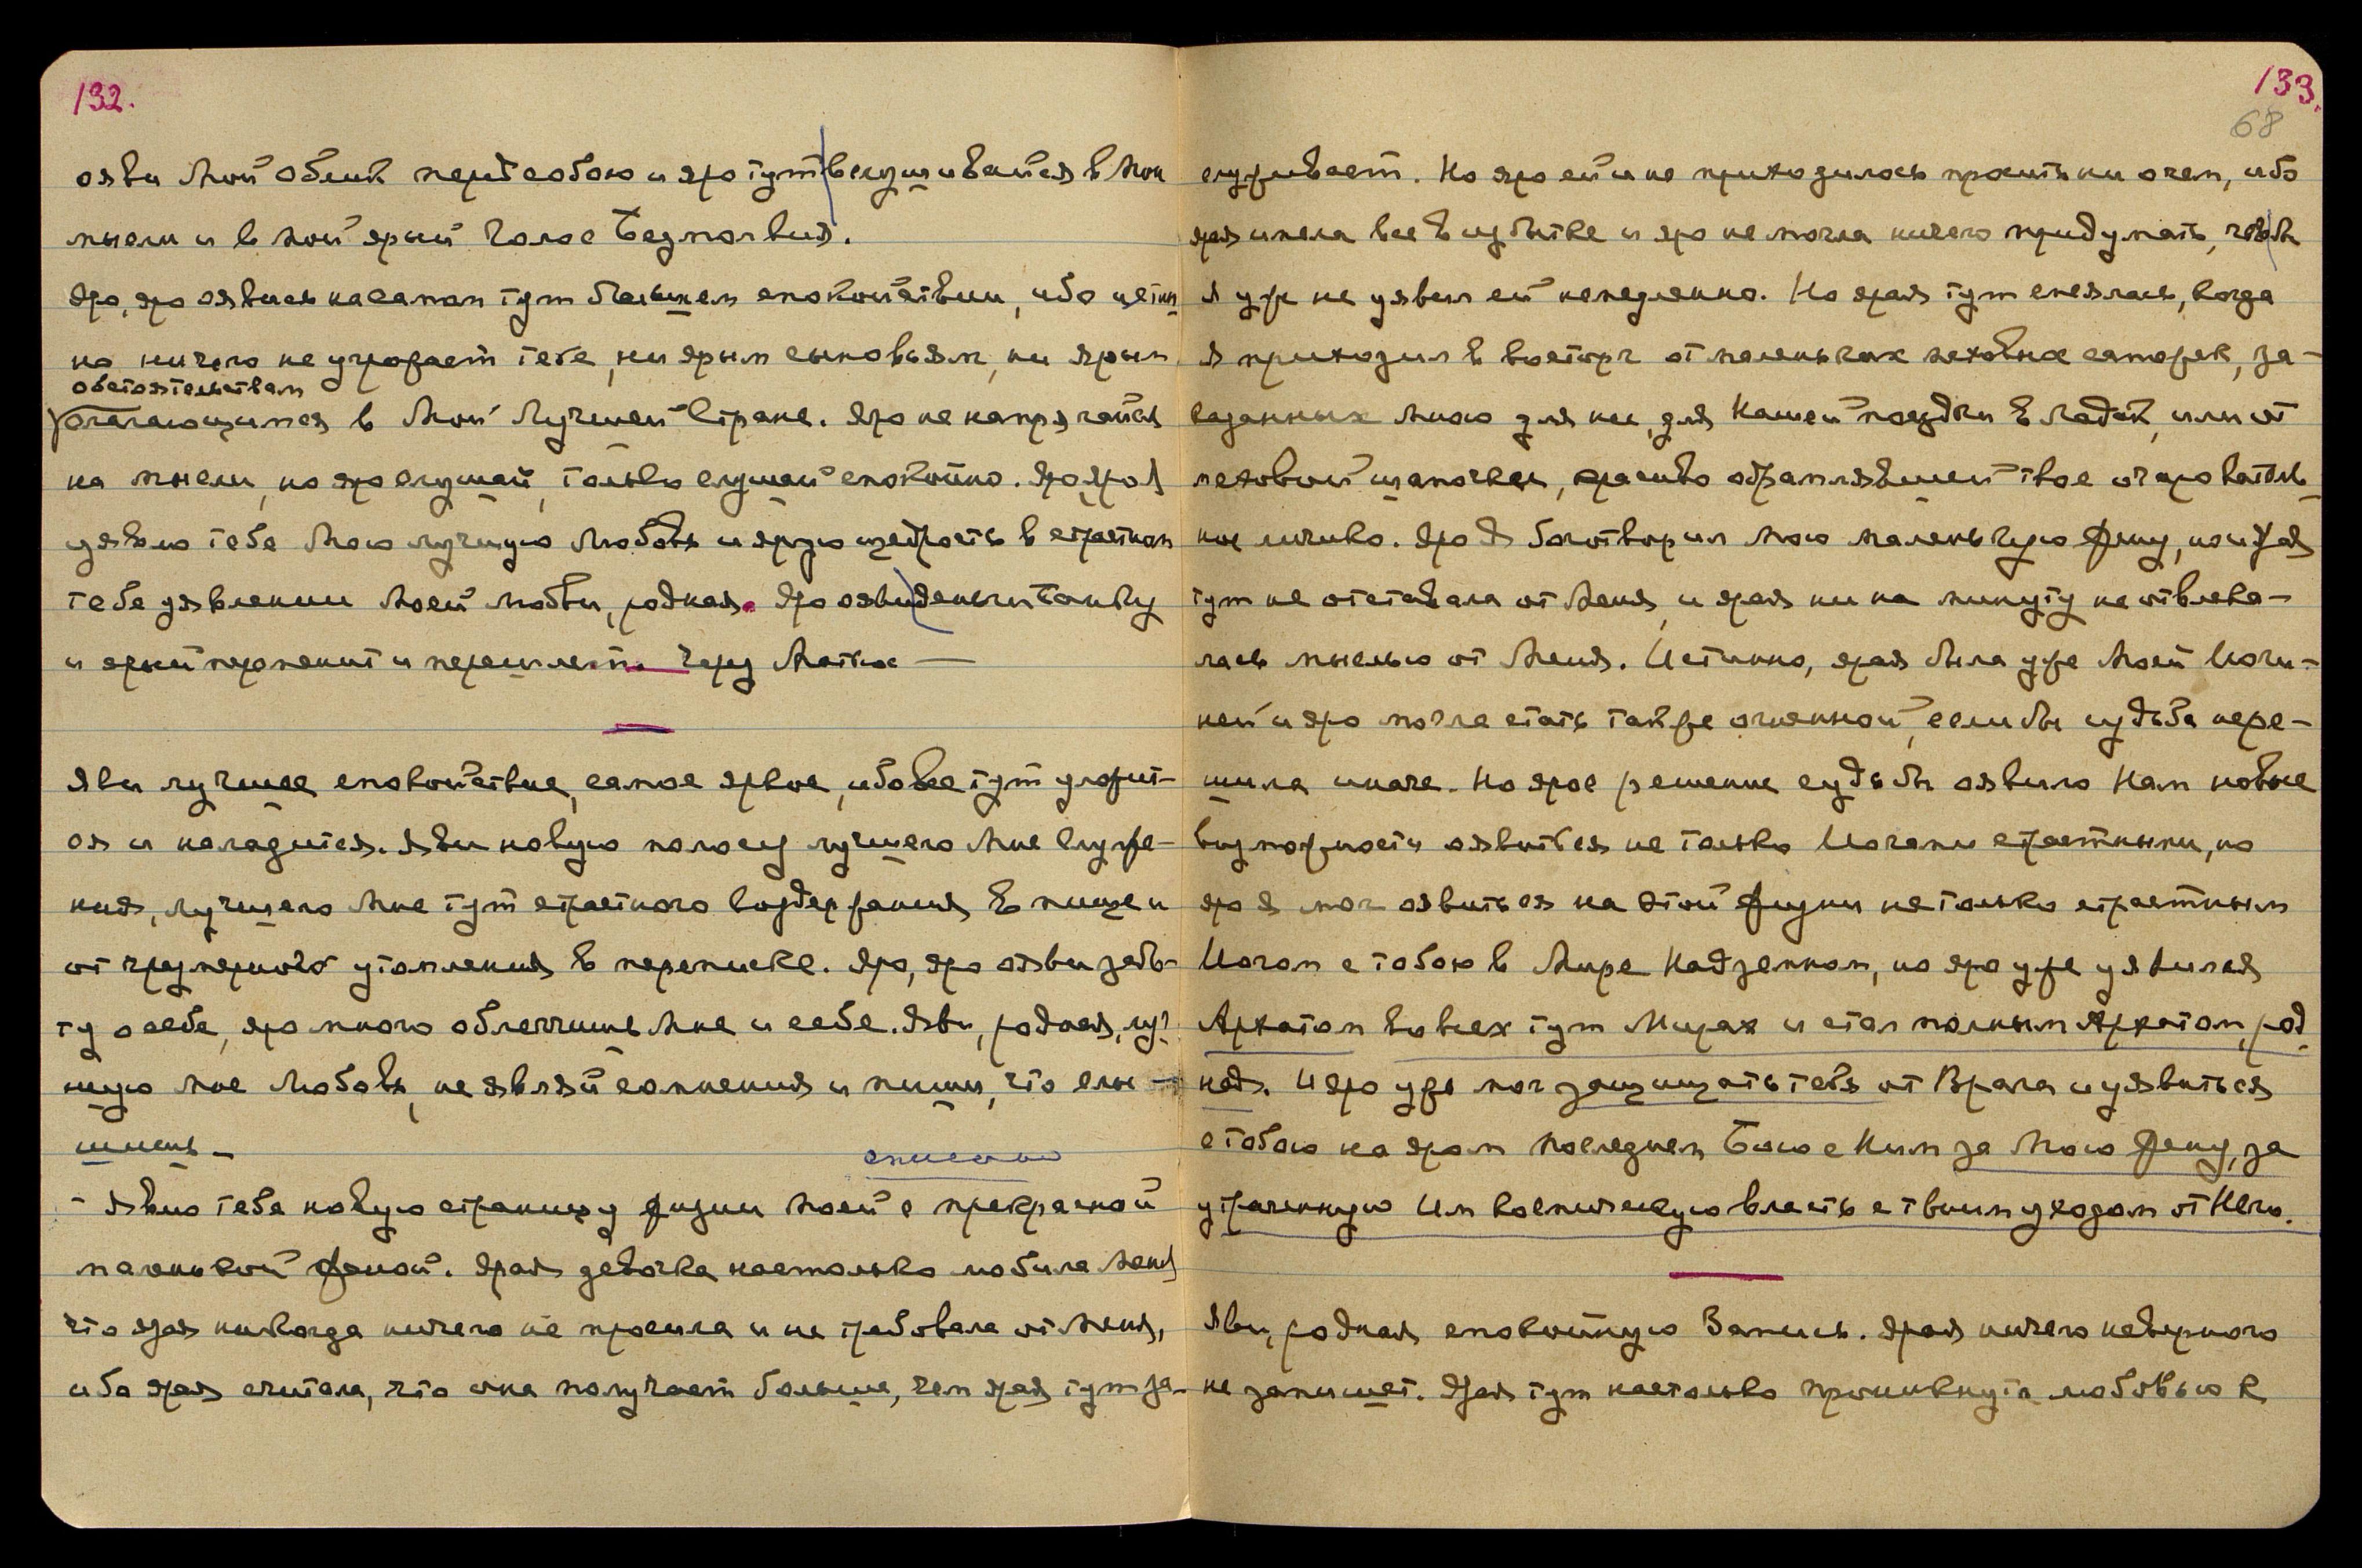 132.
ояви Мой облик перед собою и яро тут вслушивайся в Мои
мысли и в Мой ярый Голос Безмолвия.
Яро, яро оявись на самом тут большем спокойствии, ибо истин-
но ничего не угрожает тебе, ни ярым сыновьям, ни ярым
обстоятельствам
слагающимся в Мой Лучшей Стране. Яро не напрягайся
на мысли, но яро слушай, только слушай спокойно. Яро, яро Я
уявлю тебе Мою лучшую Любовь и ярую щедрость в страстном
тебе уявлении Моей любви, родная. Яро ояви деньги
и ярый перманент и перешлешь через Матисс —
Яви лучшее спокойствие, самое яркое, ибо все тут уложит-
ся и наладится. Яви новую полосу лучшего Мне служе-
ния, лучшего Мне тут страстного воздержания в пище и
от чрезмерного утомления в переписке. Яро, яро ояви забо-
ту о себе, яро много облегчишь Мне и себе. Яви, родная, луч-
шую Мне Любовь, не являй сомнения и пиши, что слы-
шишь —
списано
- Явлю тебе новую страницу жизни Моей с прекрасной
маленькой Женой. Ярая девочка настолько любила Меня,
что ярая никогда ничего не просила и не требовала от Меня,
ибо ярая считала, что она получает больше, чем ярая тут за-
133.
68
служивает. Но яро ей и не приходилось просить ни о чем, ибо
ярая имела все в избытке и яро не могла ничего придумать, чтобы
Я уже не уявил ей немедленно. Но ярая тут смеялась, когда
Я приходил в восторг от маленьких меховых сапожек, за-
казанных Мною для нее, для Нашей поездки в Ладак, или от
меховой шапочки, красиво обрамлявшей твое очарователь-
ное личико. Яро Я боготворил Мою маленькую Жену, но и ярая
тут не отставала от Меня, и ярая ни на минуту не отвлека-
лась мыслью от Меня. Истинно, ярая была уже Моей Иоги-
ней и яро могла стать также огненной, если бы судьба не ре-
шила иначе. Но ярое решение судьбы оявило Нам новые
возможности оявиться не только Иогами страстными, но
яро Я мог оявиться на этой Жизни не только страстным
Иогом с тобою в Мире Надземном, но яро уже уявился
Архатом во всех тут Мирах и стал полным Архатом, род-
ная. И яро уже мог защищать тебя от Врага и уявиться
с тобою на яром последнем Бою с Ним за Мою Жену, за
утраченную Им космическую власть с твоим уходом от Него.
Яви, родная, спокойную Запись. Ярая ничего неверного
не запишет. Ярая тут настолько проникнута любовью к